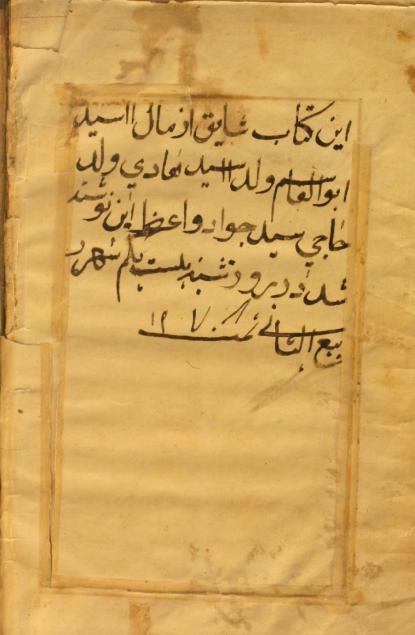 این کتاب شایق از مال السید
ابوالقاسم ولد السید هادي ولد
حاجي سید جواد واعظ این نوشته
شد در روز شنبه بیست یکم شهر ر
بیع الثانی سنه